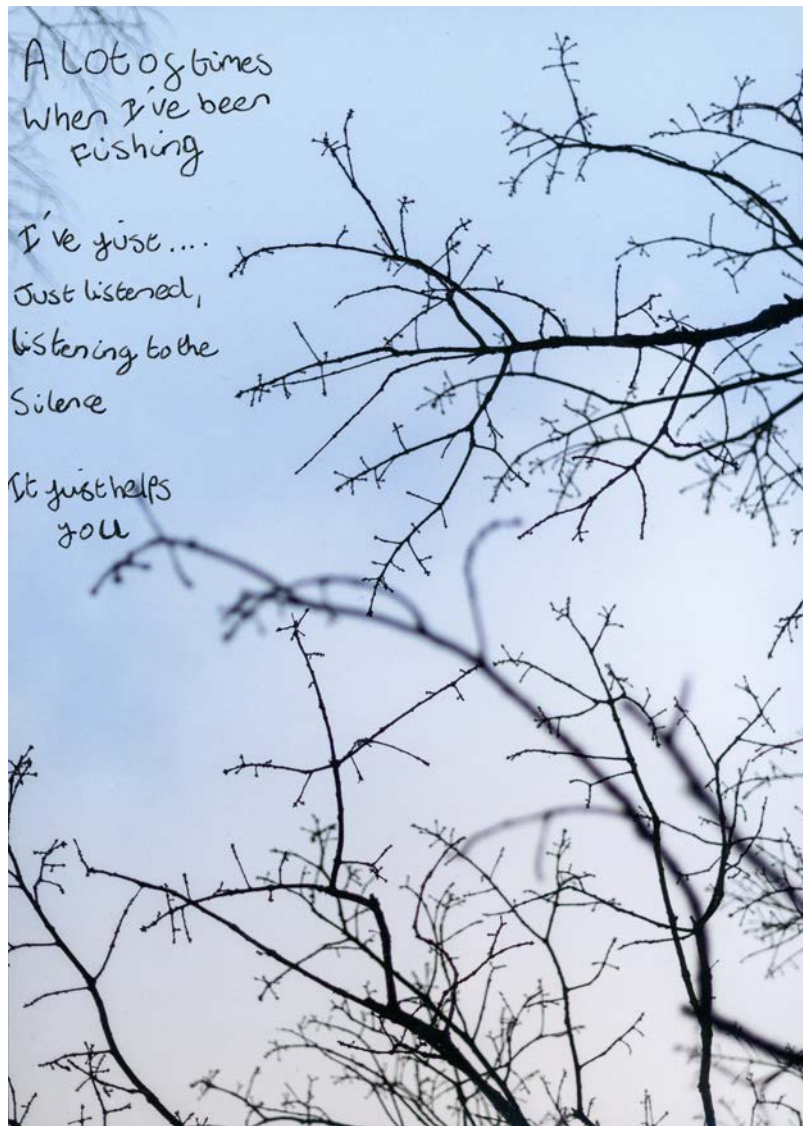 A lot of times
When I've been
Fishing
I've just....
Just listened,
listening to the
Silence
It just helps
you